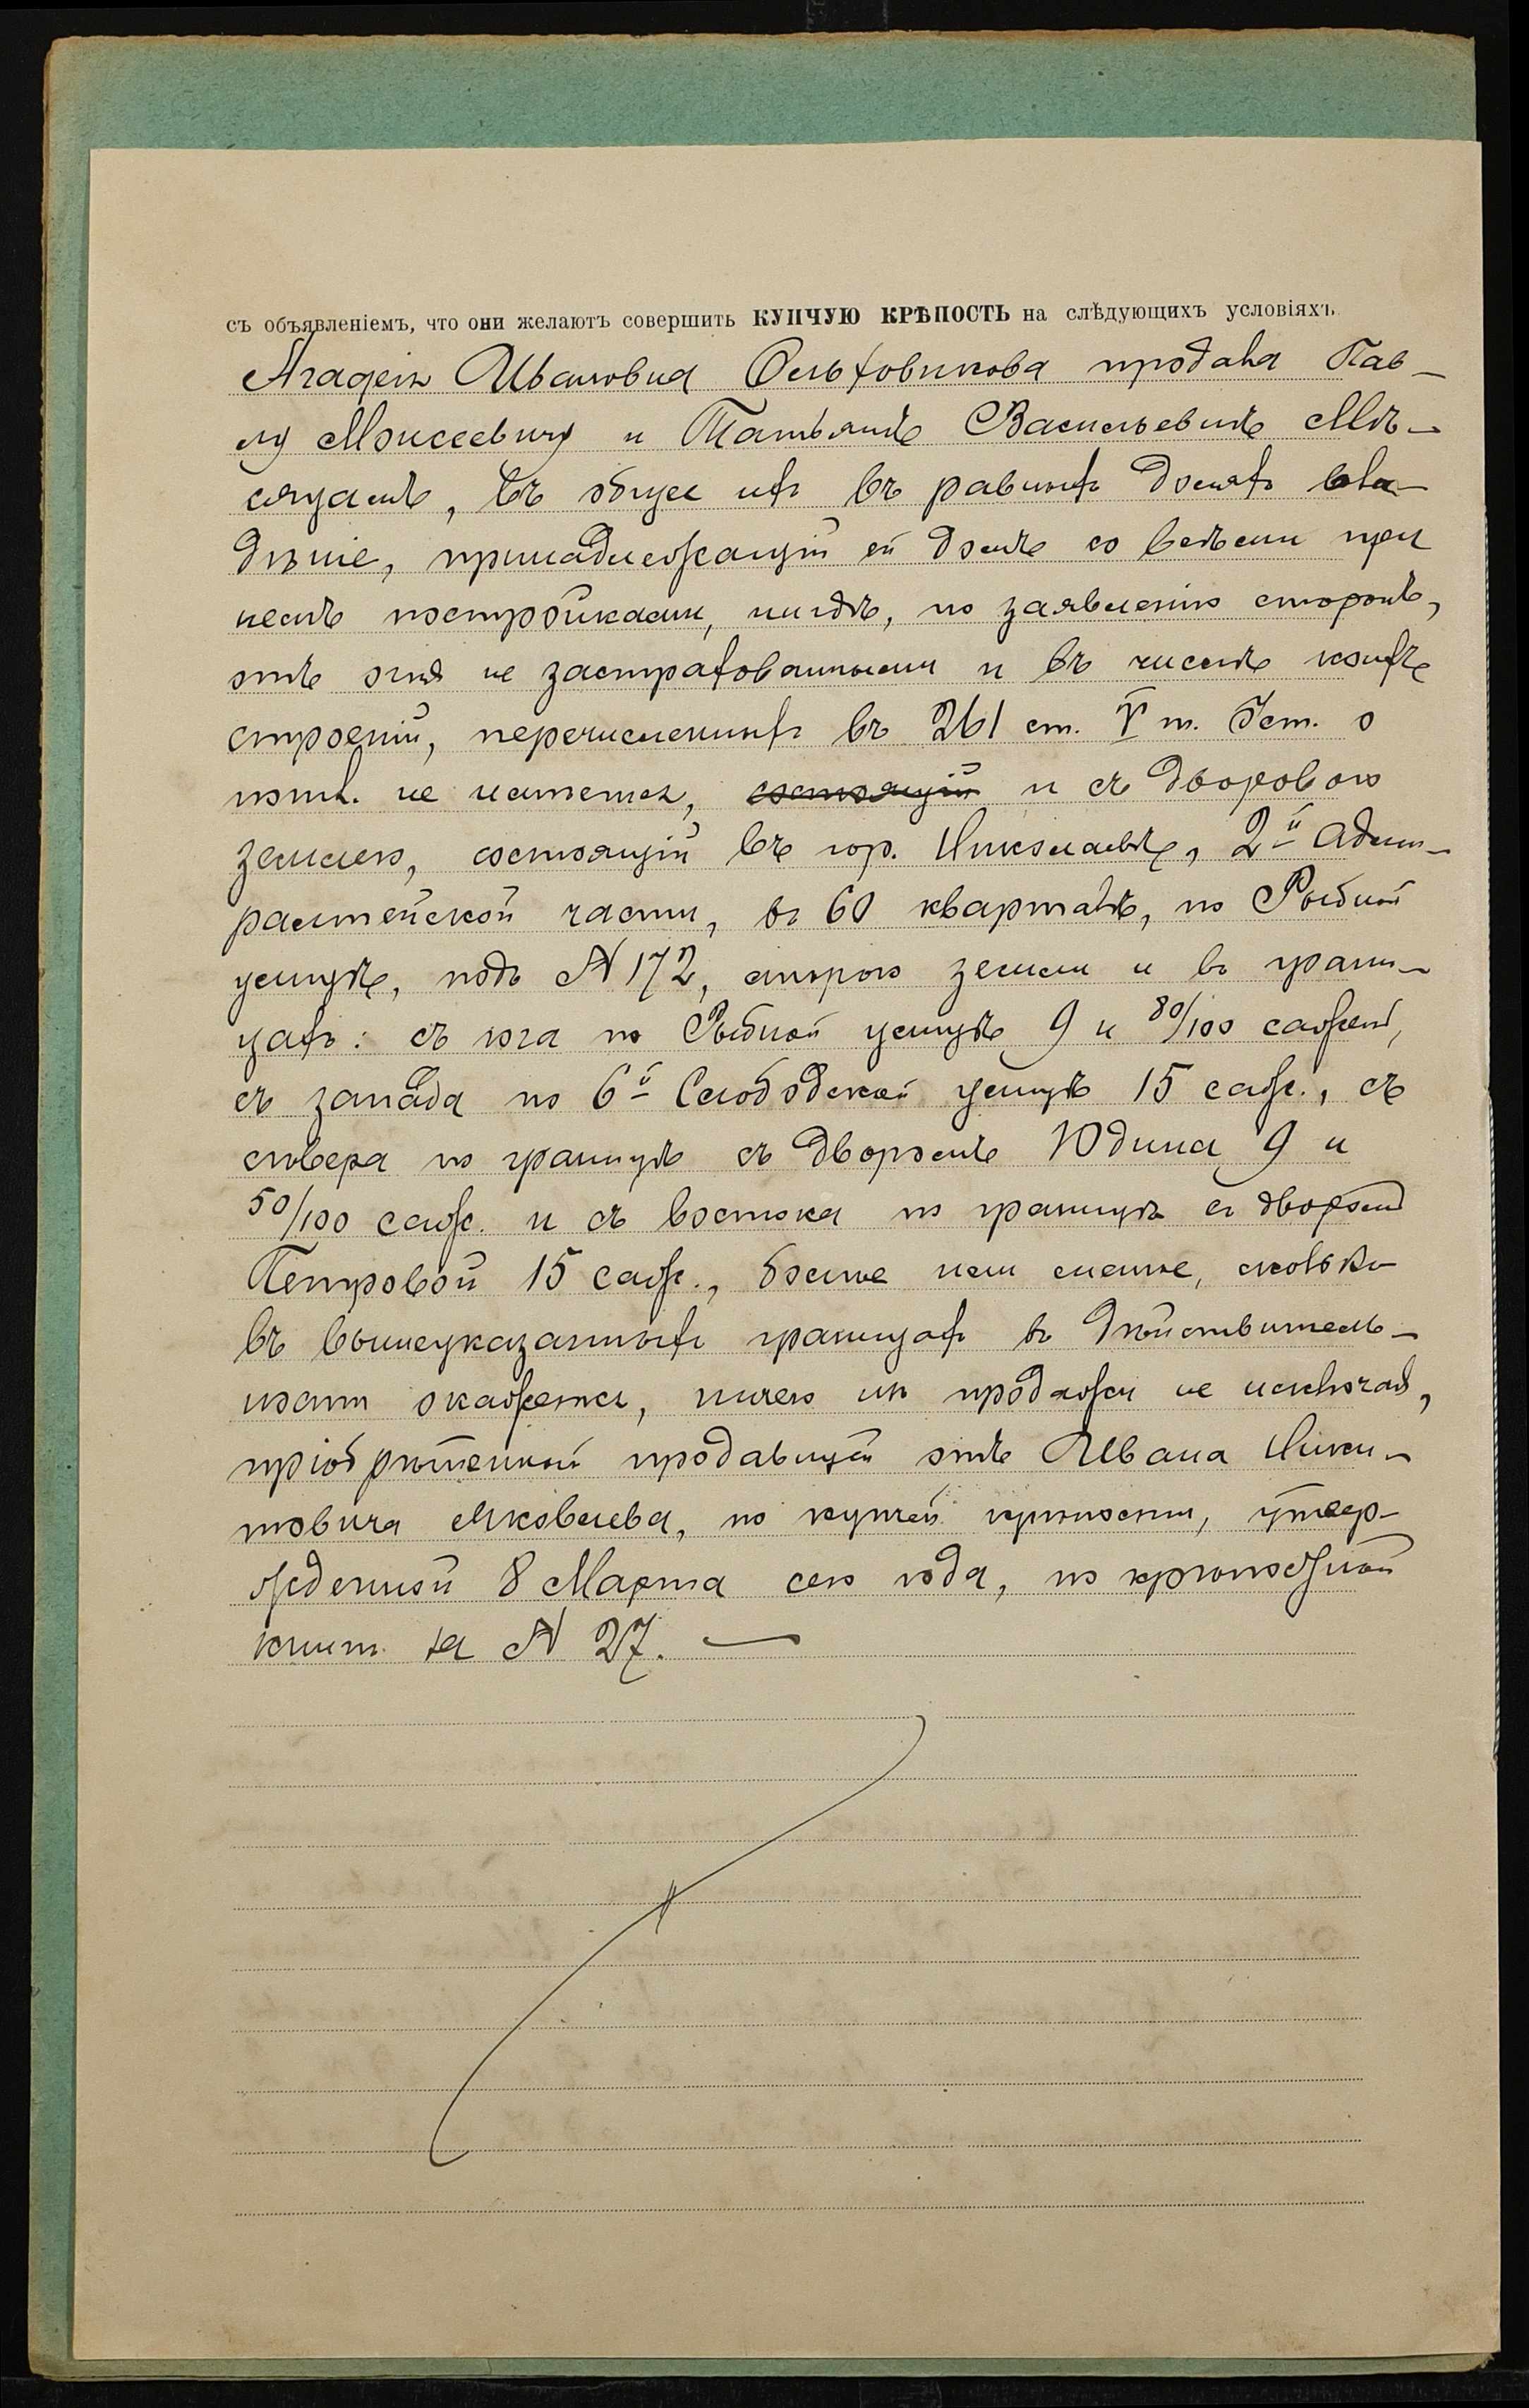 съ объявленіемъ, что они желаютъ совершить КУПЧУЮ КРѢПОСТЬ на слѣдующихъ условіяхъ.
Агафья Ивановна Ольховикова продала Пав-
лу Моисеевичу и Татьянѣ Васильевнѣ Мѣ-
сяцамъ, въ общее ихъ въ равныхъ доляхъ вла-
дѣніе, принадлежащій ей домъ со всѣми при
немъ постройками, нигдѣ, по заявленію сторонъ,
отъ огня не застрахованными и въ числѣ коихъ
строеній, перечисленныхъ въ 261 ст. V т. Уст. о
пошл. не имѣется, состоящій и съ дворовою
землею, состоящій въ гор. Николаевѣ, 2й Адми-
ралтейской части, въ 60 кварталѣ, по Рыбной
улицѣ, подъ № 172, мѣрою земли и въ грани-
цахъ: съ юга по Рыбной улицѣ 9 и 80/100 сажень,
съ запада по 6й Слободской улицѣ 15 саж., съ
сѣвера по границѣ съ дворомъ Юдина 9 и
50/100 саж. и съ востока по границѣ съ дворомъ
Петровой 15 саж., болѣе или менѣе, сколько
въ вышеуказанныхъ границахъ въ дѣйствитель-
ности окажется, ничего изъ продажи не исключая,
пріобрѣтенной продавицей отъ Ивана Ники-
товича Яковлева, по купчей крѣпости, утвер-
жденной 8 Марта сего года, по крѣпостной
книгѣ за № 27.